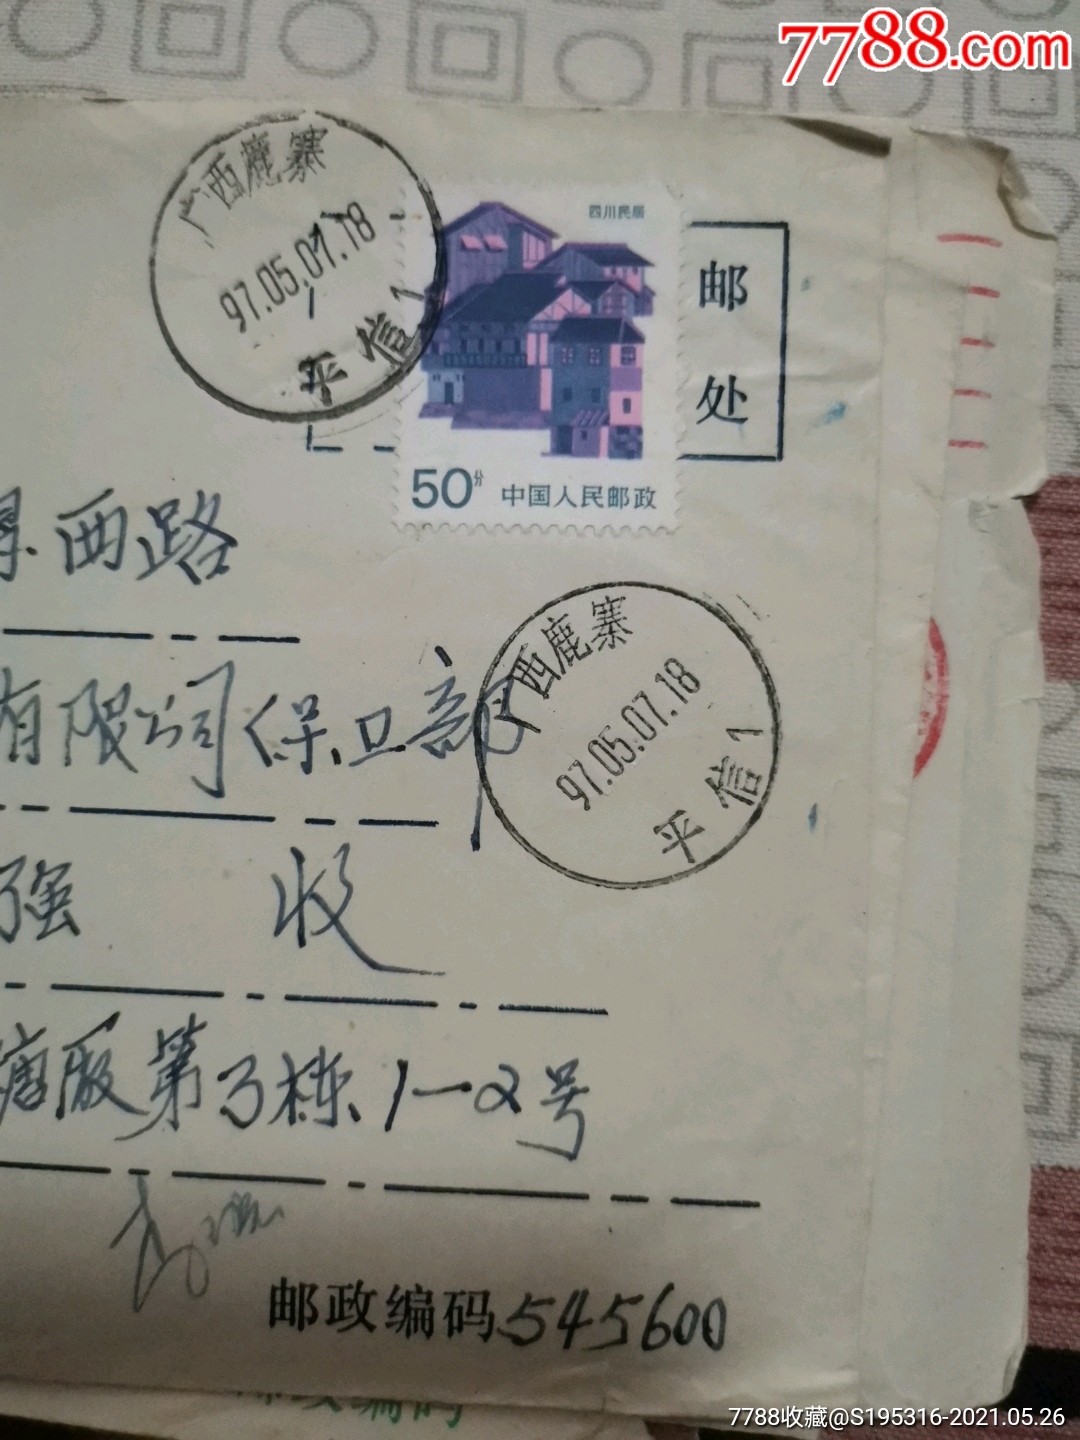 7788.com
广西鹿寨
97.05.07.18
平信1
四川民居
50分 中国人民邮政
邮
处
西路
广西鹿寨
97.05.07.18
平信1
有限公司保卫部
强 收
糖厂第3栋1-2号
邮政编码545600
邮政编码
7788收藏@S195316-2021.05.26